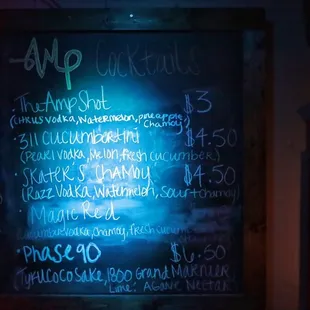 Amp Cocktails
· The Amp Shot $3
(citrus vodka, watermelon, pineapple, chamoy)
· 311 Cucumbertini $4.50
(Pearl vodka, melon, fresh cucumber)
· Skater's Chamoy $4.50
(Razz vodka, watermelon, sour + chamoy)
· Magic Red
vodka, chamoy, fresh cucumber
· Phase 90 $6.50
(Tyku Coco Sake, 1800 Grand Marnier
Lime, Agave Nectar